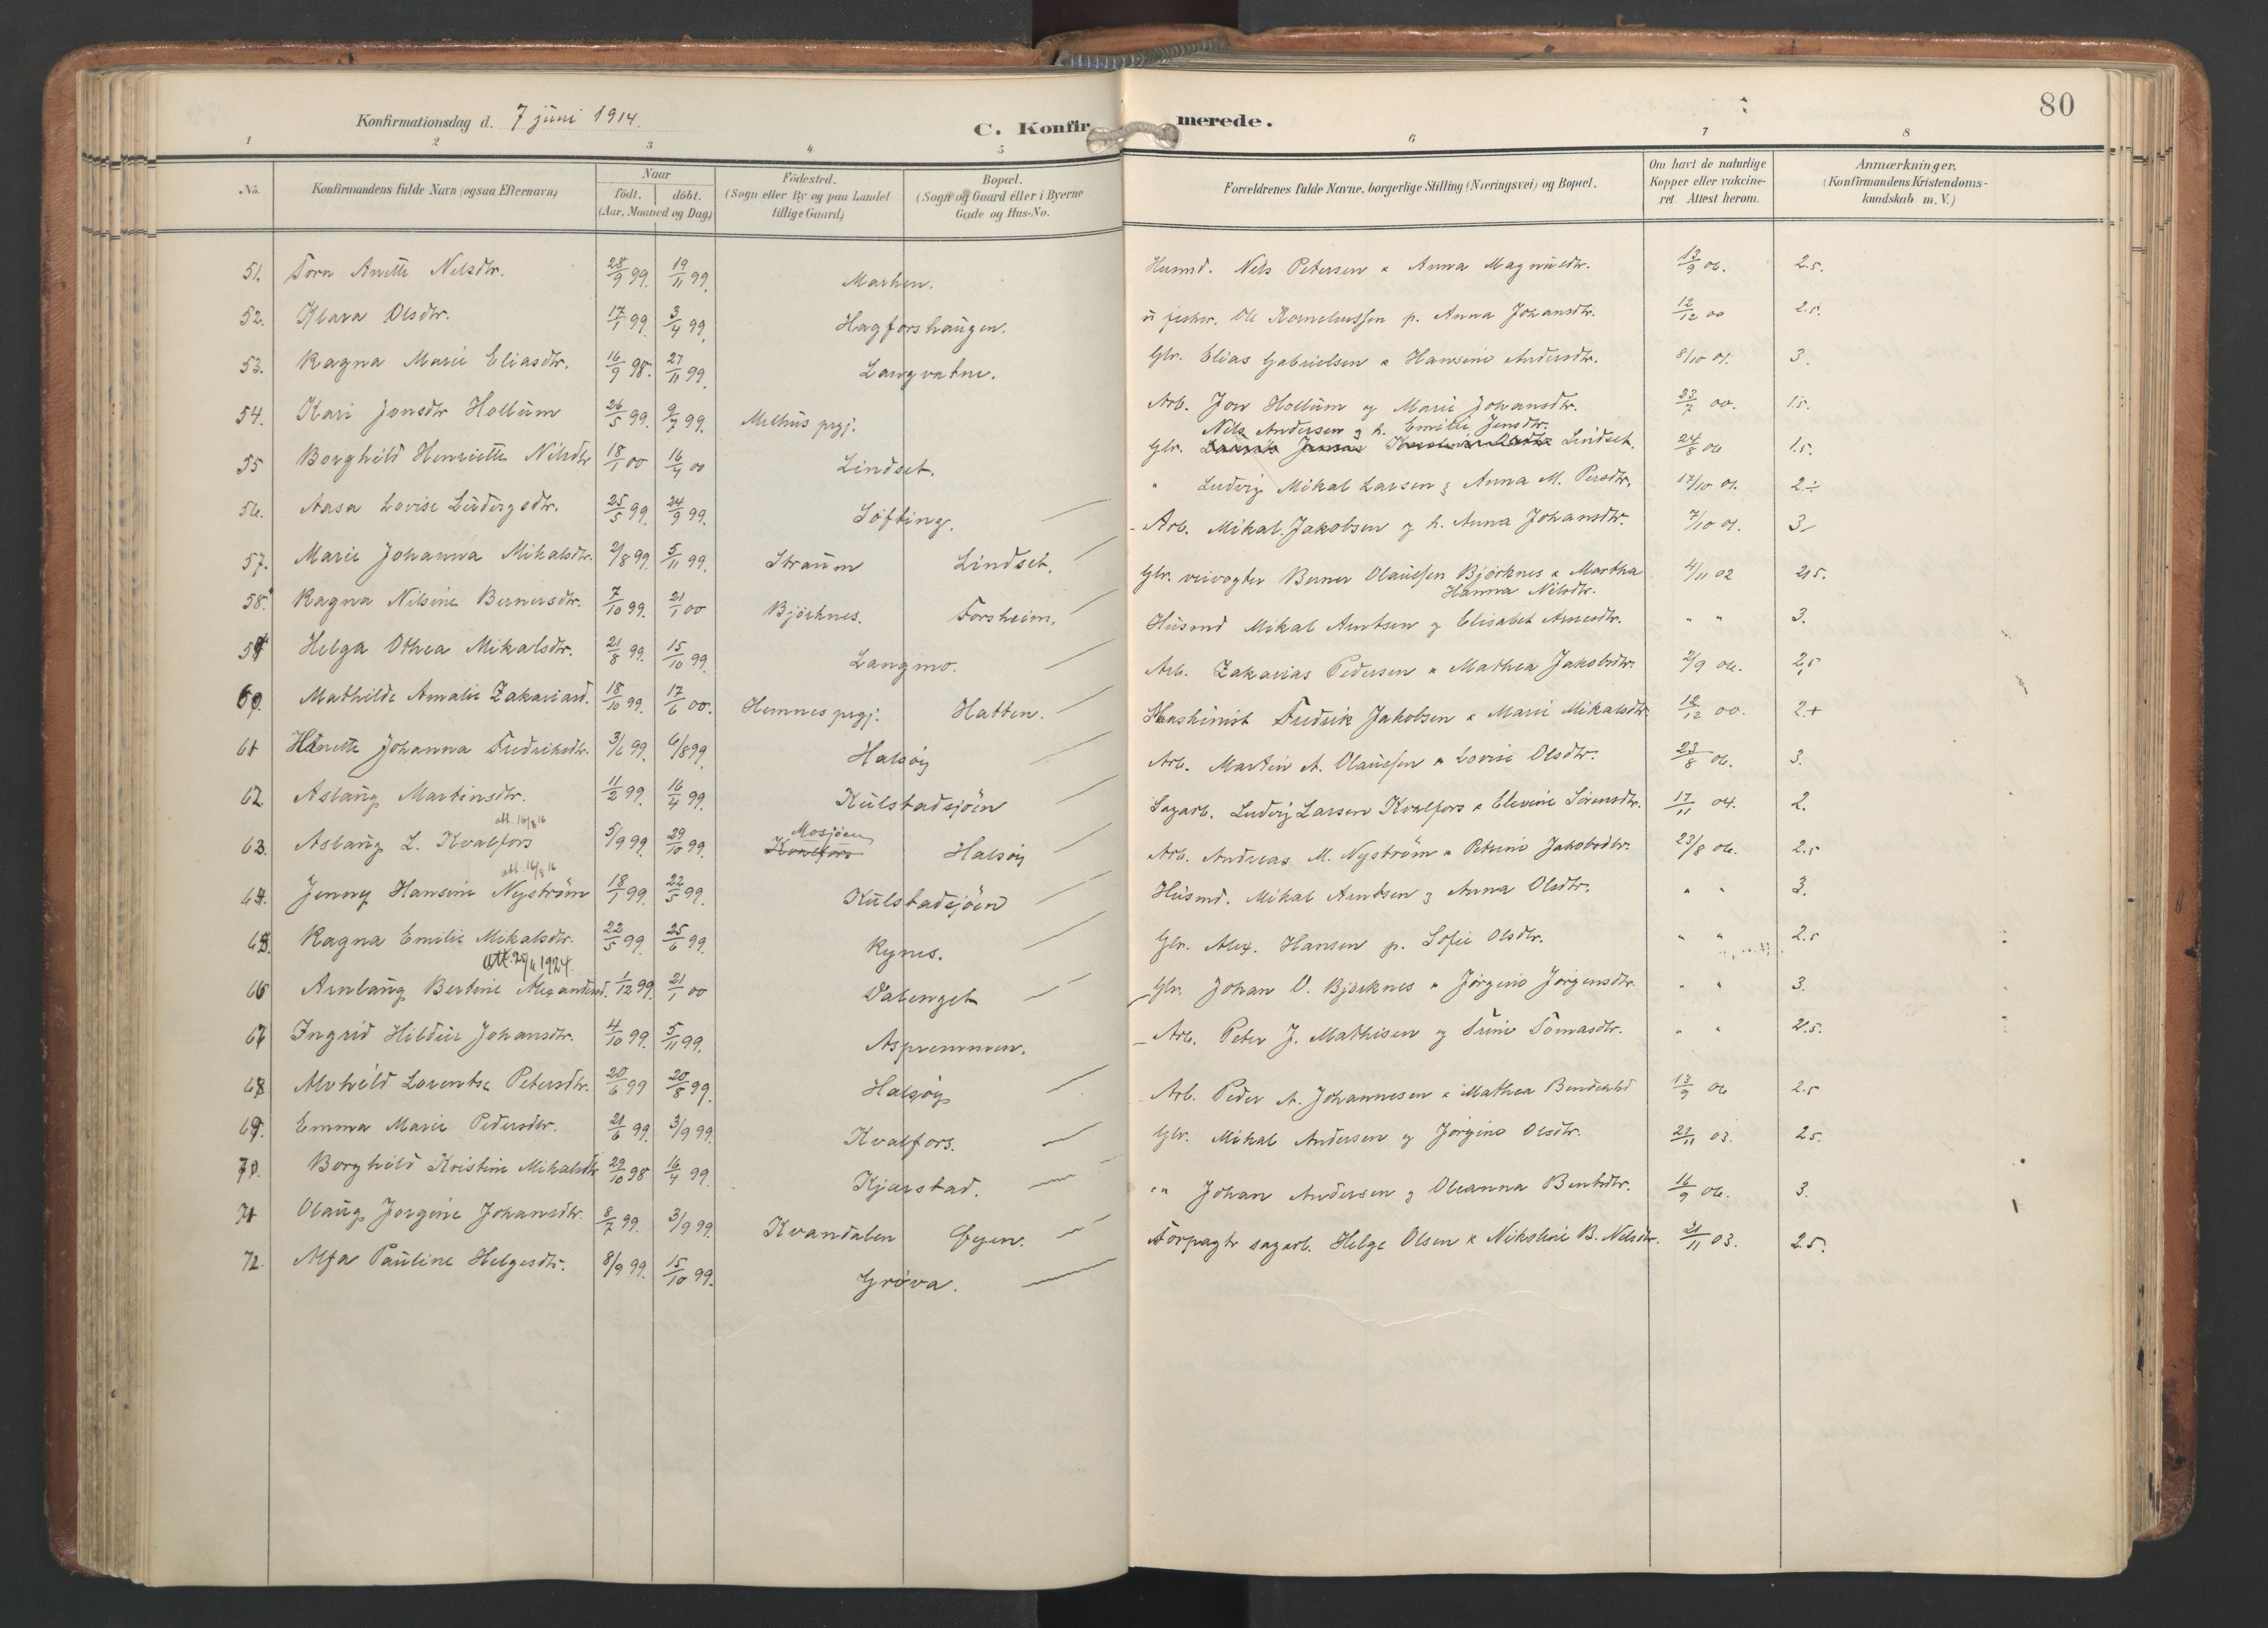 Konfirmationsdag d. 7 juni 1914.
C. Konfirmerede.
80
1 2 3 4 5 6 7 8
No. Konfirmandens fulde Navn (ogsaa Efternavn) Naar født. døbt. (Aar, Maaned og Dag) Fødested. (Sogn eller By og paa Landet tillige Gaard) Bopæl. (Sogn og Gaard eller i Byerne Gade og Hus-No. Forældrenes fulde Navne, borgerlige Stilling (Næringsvei) og Bopæl. Om havt de naturlige Kopper eller vakcineret. Attest herom. Anmærkninger. (Konfirmandens Kristendomskundskab m. V.)
51. Torn Anette Nilsdtr. 28/9 99. 19/11 99. Marken. Husmd. Nils Petersen & Anna Magnusdtr. 13/9 06. 2.5.
52. Klara Olsdtr. 17/1 99. 3/4 99. Hagforshaugen. Ole Korneliussen p. Anna Johansdtr. 12/12 00 2.5.
53. Ragna Marie Eliasdtr. 16/9 98. 27/11 99. Langvatne. Gbr. Elias Gabrielsen & Hansine Andersdtr. 8/10 01. 3.
54. Kari Jonsdtr Hollum 26/5 99. 9/7 99. Melhus prgj. Arb. Jon Hollum og Marie Johansdtr. 23/7 00. 1.5.
Nils Andersen g h. Emilie Jensdtr.
55 Borghild Henriette Nilsdtr 18/1 00 16/4 00 Lindset. Gbr. Lindset. 24/8 06 1.5.
56. Aasa Lovise Ludvigsdtr. 25/5 99. 24/9 99. Søfting. " Ludvig Mikal Larsen & Anna M. Persdtr. 17/10 01. 2÷
57. Marie Johanna Mikalsdtr. 2/8 99. 5/11 99. Straum Lindset. Arb. Mikal Jakobsen og h. Anna Johansdtr. 7/10 01. 3
58. Ragna Nilsine Bernersdtr. 7/10 99. 21/1 00 Bjørknes. Forsheim. Gbr. veivogter Berner Olaussen Bjørknes & Martha Hanna Nilsdtr. 4/11 02 2.5.
59 Helga Othea Mikalsdtr. 21/8 99. 15/10 99. Langmo. Husmd Mikal Arntsen og Elisabet Arnesdtr. " " 3.
60. Mathilde Amalie Zakariasd. 18/10 99. 17/6 00. Hemnes prgj. Hatten. Arb. Zakarias Pedersen & Mathea Jakobsdtr. 2/9 06. 2,5
61 Hanette Johanna Fredriksdtr. 3/6 99. 6/8 99. Halsøy Maskinist Fredrik Jakobsen & Marie Mikalsdtr 12/12 00. 2+
62. Aslaug Martinsdtr. 11/2 99. 16/4 99. Kulstadsjøen Arb. Martin A. Olaussen & Lovise Olsdtr. 23/8 06. 3.
att. 16/8 16
63. Aslaug L. Kvalfors 5/9 99. 29/10 99. Mosjøen Kvalfors Halsøy Sagarb. Ludvig Larsen Kvalfors & Elevine Sørensdtr. 17/11 04. 2.
att. 16/8 16
64. Jenny Hansine Nystrøm 18/1 99. 22/5 99. Kulstadsjøen Arb. Andreas M. Nystrøm & Petrine Jakobsdtr. 23/8 06. 2.5
65. Ragna Emilie Mikalsdtr. 22/5 99. 25/6 99. Rynes. Husmd. Mikal Arntsen & Anna Olsdtr. " " 3.
att. 25/6 1924.
66 Arnlaug Bertine Alexandersd. 1/12 99. 21/1 00 Dalenget Gbr. Alex. Hansen p. Sofie Olsdtr. " " 2.5
67 Ingrid Hildur Johansdtr. 4/10 99. 5/11 99. Aspremmen. Gbr. Johan O. Bjørknes & Jørgine Jørgensdtr. " " 3.
68 Alvhild Lorentse Petersdtr. 20/6 99 20/8 99. Halsøy Arb. Peter J. Mathisen og Trine Tomasdtr. " " 2.5.
69. Emma Marie Pedersdtr. 21/6 99. 3/9 99. Kvalfors. Arb. Peder A. Johannesen & Mathea 13/9 06 2.5
70. Borghild Kristine Mikalsdtr 29/10 98 16/4 99. Kjærstad. Gbr. Mikal Andersen og Jørgine Olsdtr. 23/11 03. 2.5.
71 Olaug Jørgine Johansdtr. 8/7 99. 3/9 99. Kvandalen Øyen. " Johan Andersen & Oleanna Bentsdtr. 16/9 06. 3.
72. Alfa Pauline Helgesdtr. 8/9 99. 15/10 99. Grøva. Forpagtr sagarb. Helge Olsen & Nikoline B. Nilsdtr. 21/11 03. 2.5.